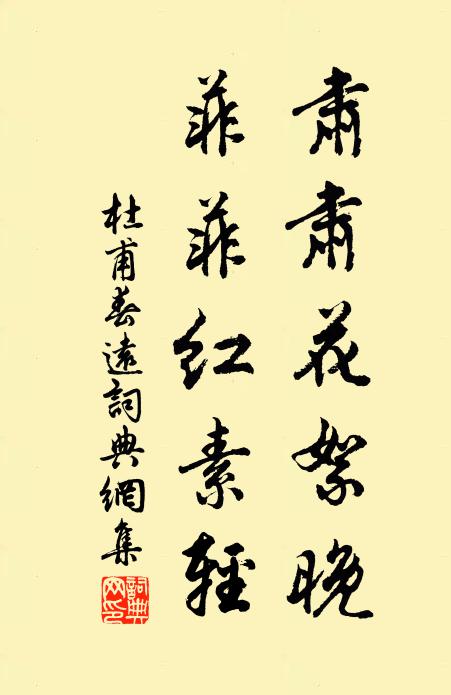 肅肅花絮晚
菲菲紅素輕
杜甫春遠詞典網集
詞典網印